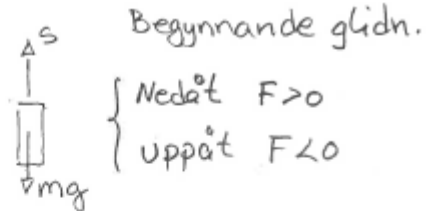 Begynnande glidn.
S
Nedåt F>0
uppåt F<0
mg